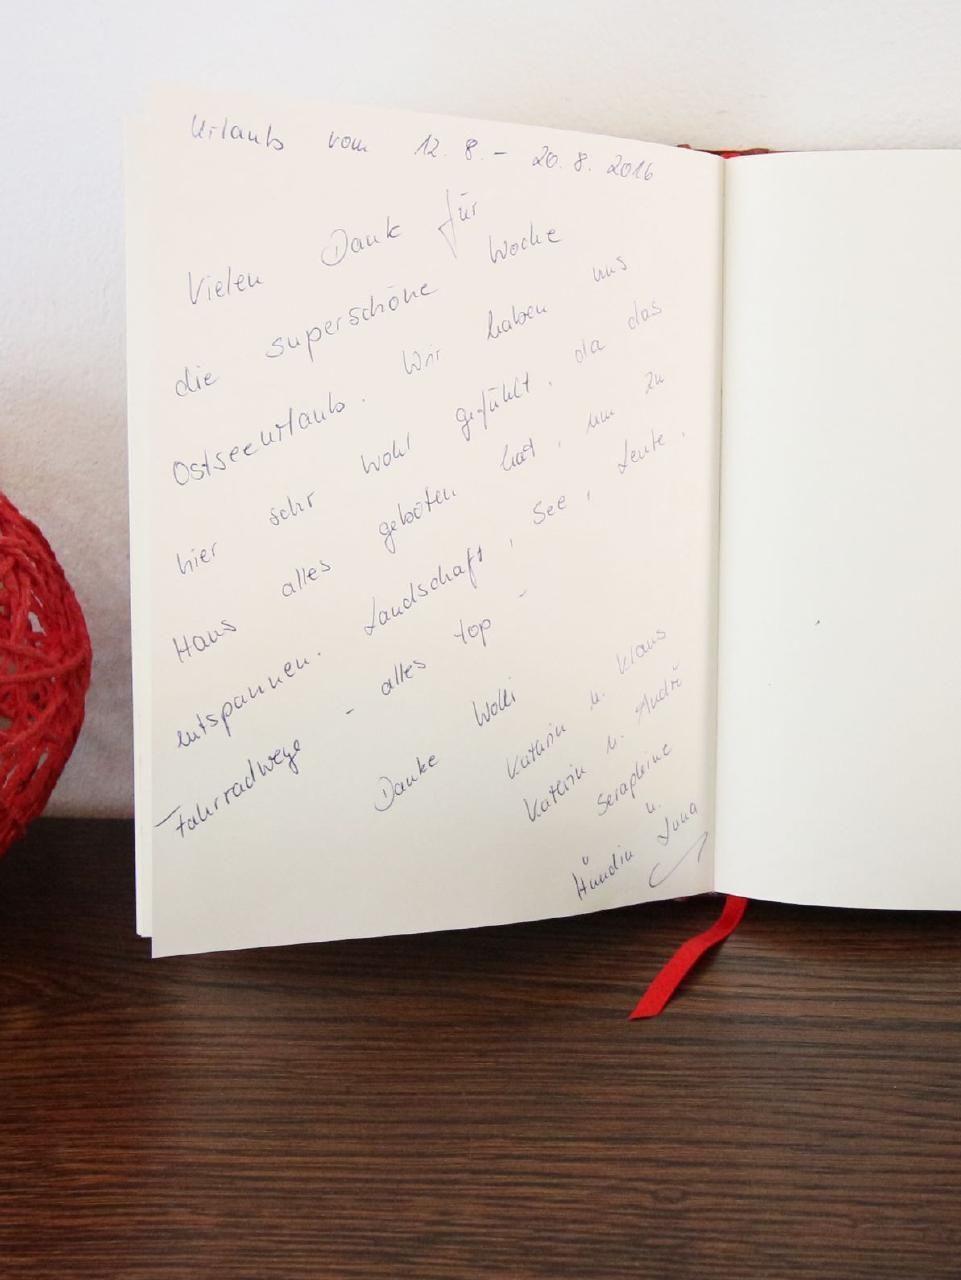 Urlaub vom 12.8. - 20.8.2016
Vielen Dank für
die superschöne Woche
Ostseeurlaub. Wir haben uns
hier sehr wohl gefühlt, da das
Haus alles geboten hat, um zu
entspannen. Landschaft, See, Leute,
Fahrradwege - alles top -
Danke Wolli
Kathrin u. Klaus
Katrin u. André
Seraphine
u.
Hündin Luna